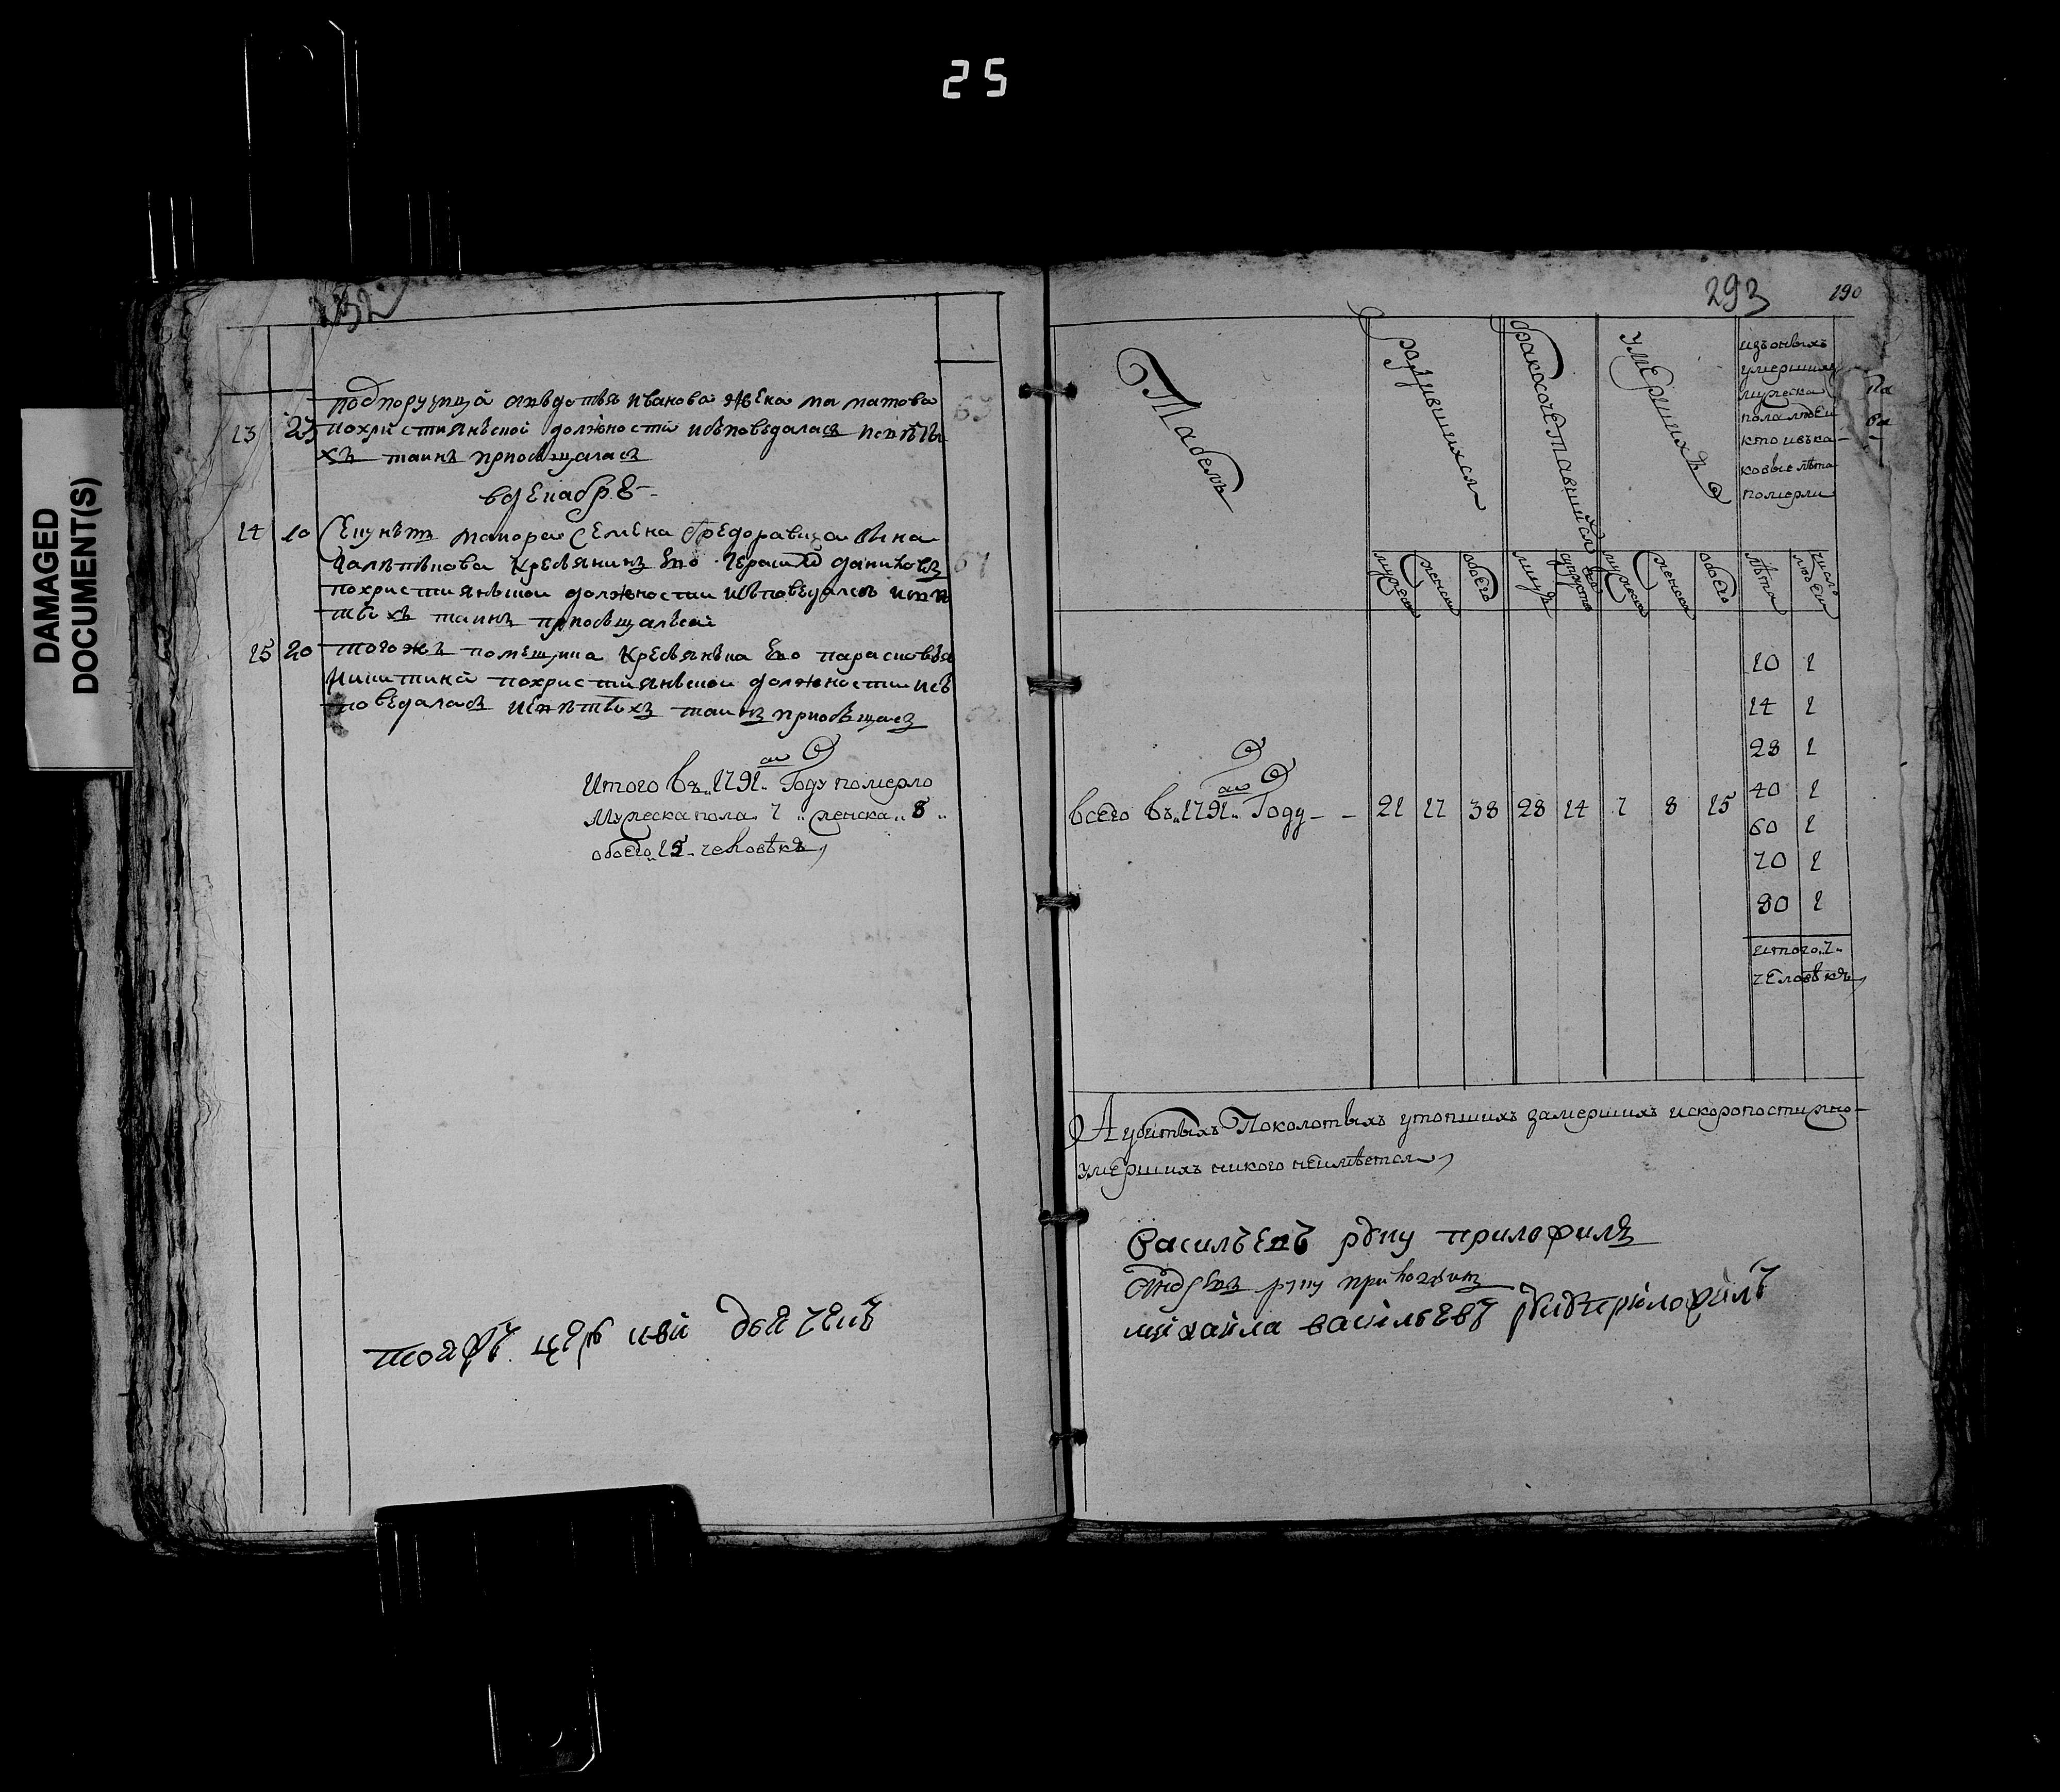 25
DAMAGED
DOCUMENT(S)
13 23 подпорущица авъдотья иванова жена маматова 63
похристиянъской должности исъповъдалась исвятых
хъ таинъ приобщалась
вдекабре
14 10 Секунътъ маиора Семена Федоравича вина 67
крестьянинъ его Герасимъ даниловъ
похристиянъскои должностии исповъдался исвя
тыхъ таинъ приобщалъся
15 20 тогожъ помещика крестьянъка его парасковья
Никитина похристиянъскои должностии исъ
поведалась исвятыхъ таинъ приобщалас
Итого въ „1791„ го Году померло
Мужеска пола „7„ женска „8„
обоего „15„ человѣкъ
293 190
Табель
родившихся
бракосочетавшихся
умершихъ
изъ оныхъ
умершихъ
мужеска
пола людеи
кто и въ ка-
ковые лѣта
померли
мужеск женска обоего мужеск женска обоего лѣта число людеи
всего въ „1791„ го Году - - 21 17 38 28 14 7 8 15
10 1
14 1
28 1
40 1
60 1
70 1
80 1
итого „7„
человѣкъ
А убитыхъ Поколотыхъ утопшихъ замершихъ и скоропостижно
умершихъ никого неимѣется
василъевъ руку приложилъ
Андреевъ руку приложилъ
михаила василъевъ руку приложилъ